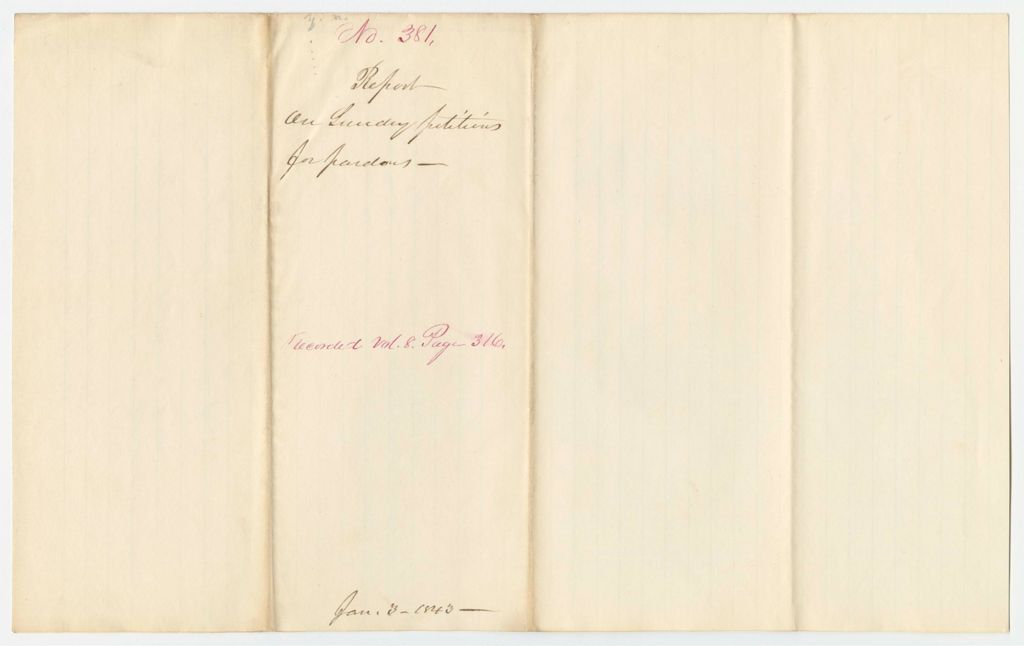 No. 381.
Report
On Sundry petitions
for pardons —
Recorded Vol. 8. Page 316.
Jan. 3 - 1843 —